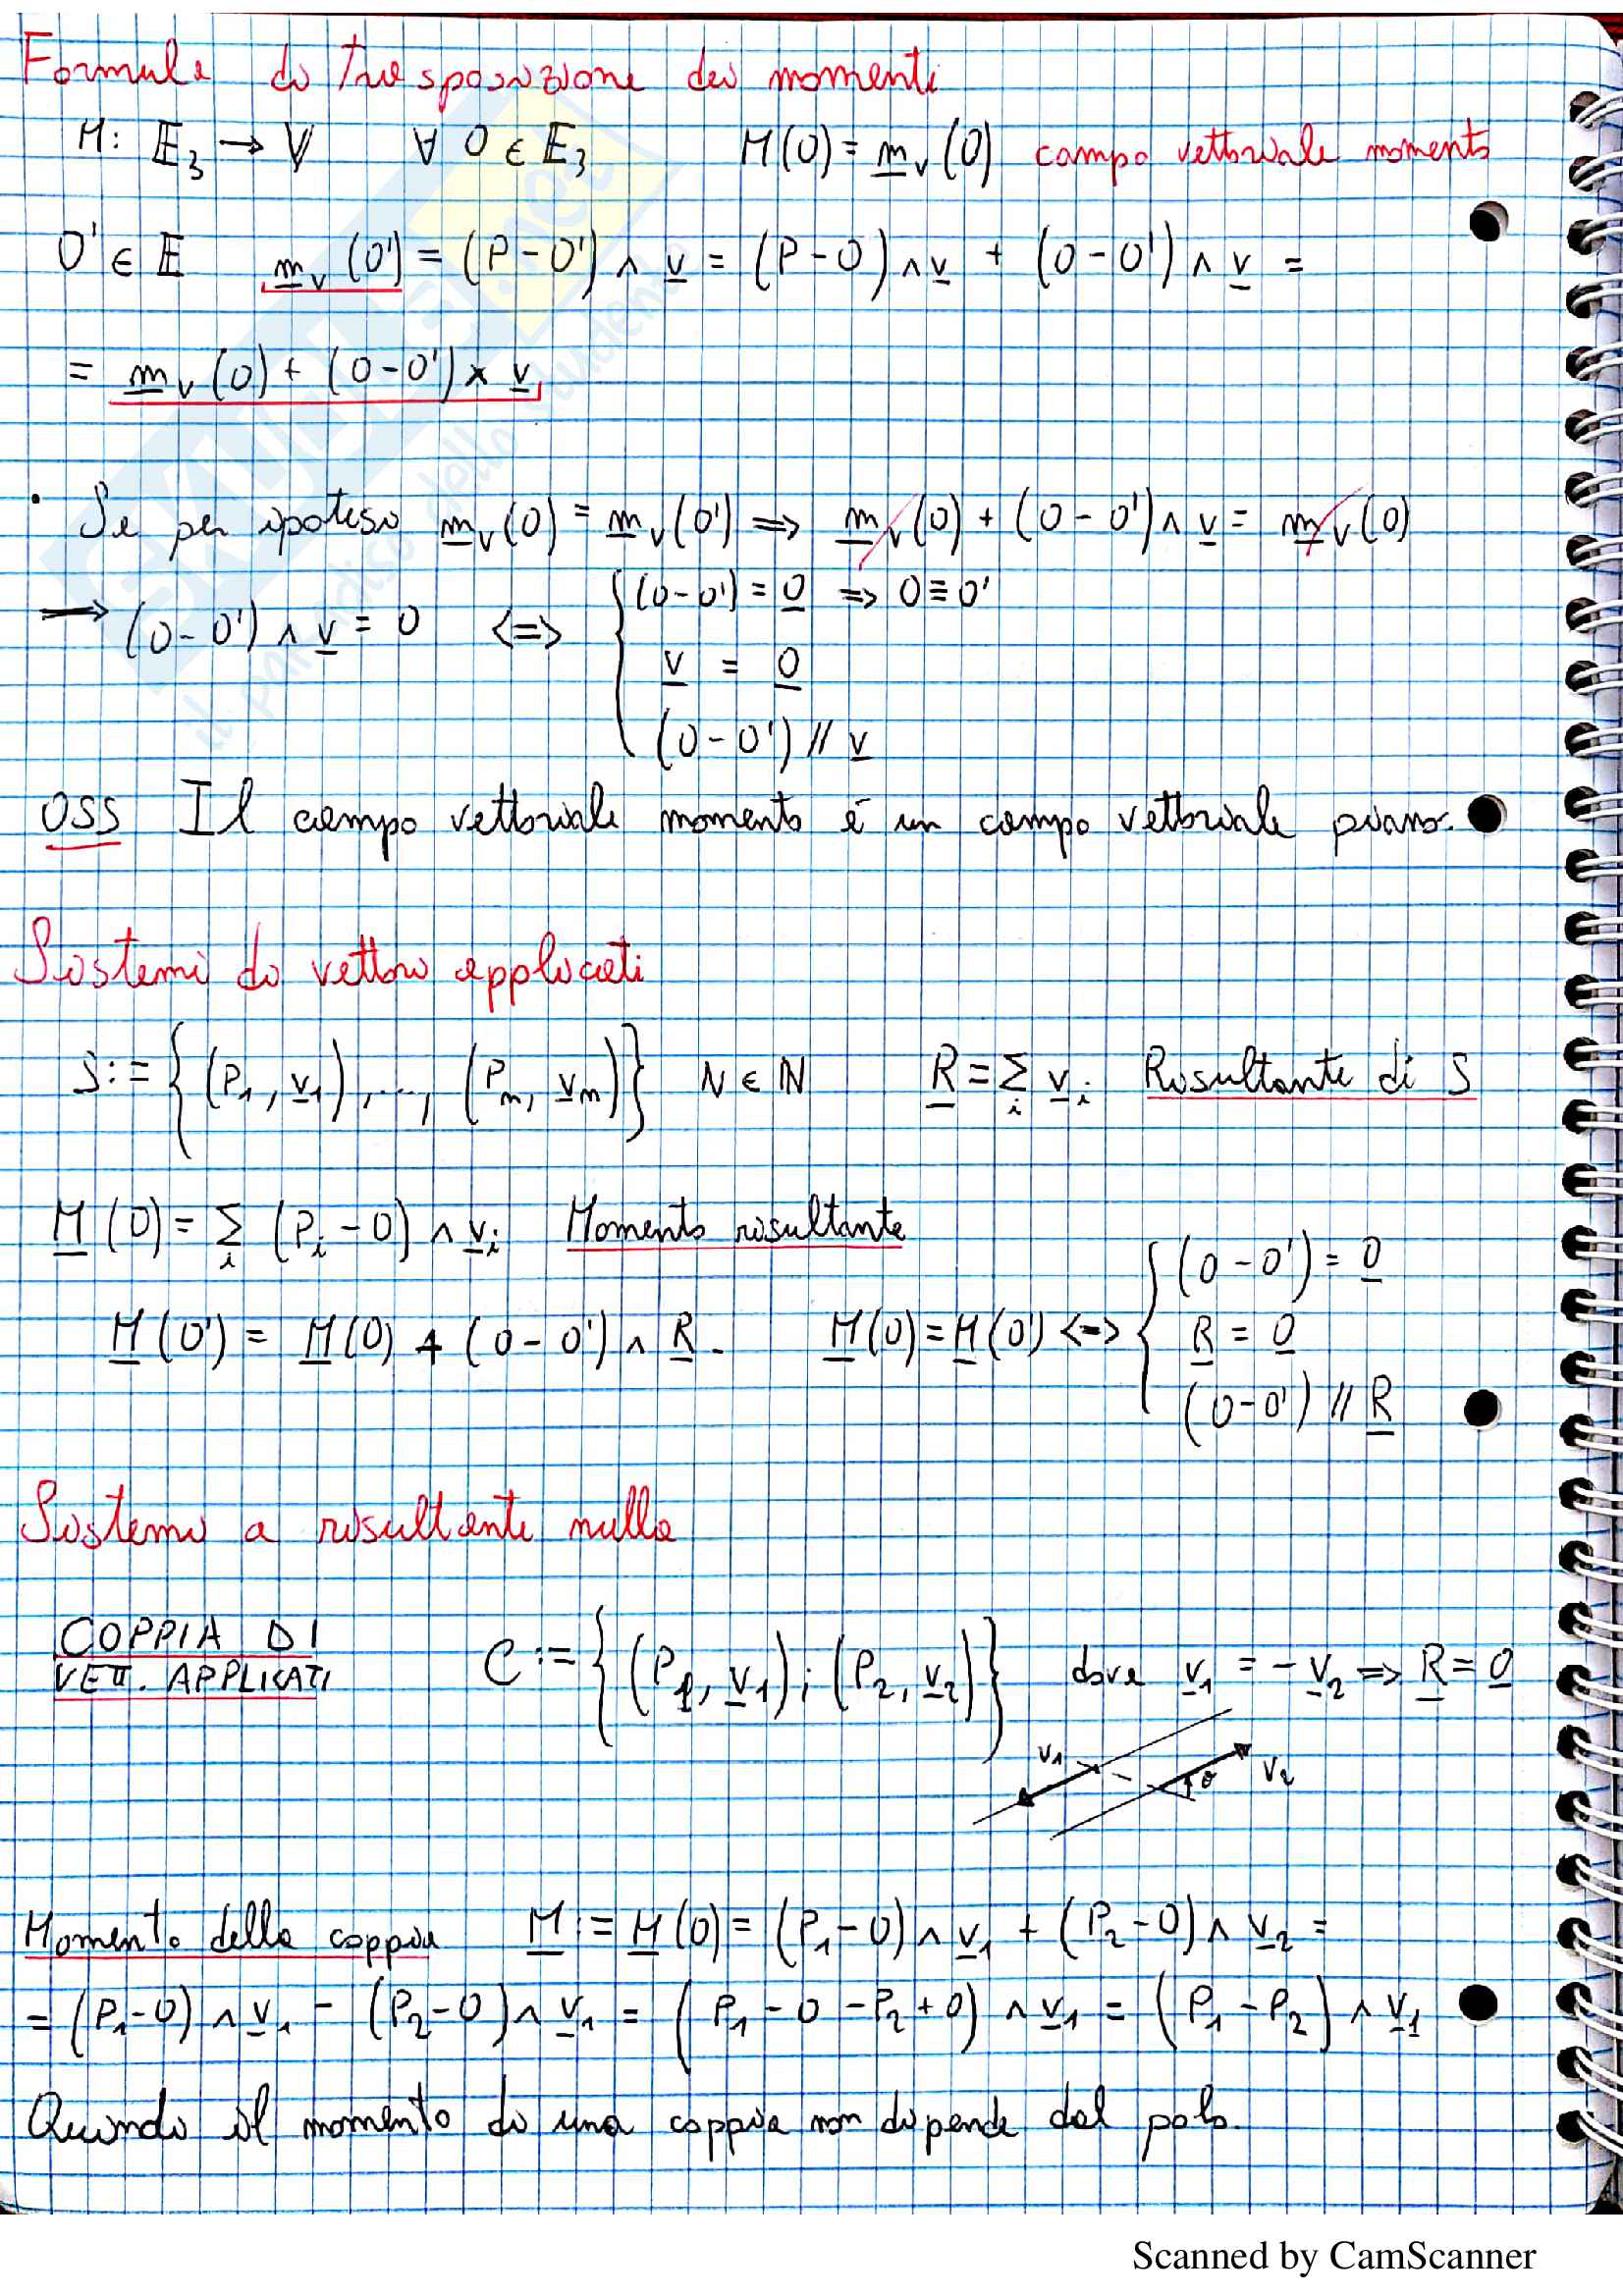 Formula di trasposizione dei momenti
M: E₃ → V ∀ O ∈ E₃ M(O) = m_v(O) campo vettoriale momento
O' ∈ E m_v(O') = (P-O') ∧ v = (P-O) ∧ v + (O-O') ∧ v =
= m_v(O) + (O-O') × v
• Se per ipotesi m_v(O) = m_v(O') => m_v(O) + (O-O') ∧ v = m_v(O)
→ (O-O') ∧ v = 0 <=> { (O-O') = 0 => O ≡ O'
v = 0
(O-O') // v
OSS Il campo vettoriale momento è un campo vettoriale piano.
Sistemi di vettori applicati
S := {(P₁, v₁), ..., (Pₙ, vₙ)} N ∈ ℕ R = Σᵢ vᵢ Risultante di S
M(O) = Σᵢ (Pᵢ - O) ∧ vᵢ Momento risultante
M(O') = M(O) + (O-O') ∧ R. M(O) = M(O') <=> { (O-O') = 0
R = 0
(O-O') // R
Sistemi a risultante nulla
COPPIA DI
VETT. APPLICATI
C := {(P₁, v₁); (P₂, v₂)} dove v₁ = -v₂ => R = 0
v₁ θ v₂
Momento della coppia M := M(O) = (P₁-O) ∧ v₁ + (P₂-O) ∧ v₂ =
= (P₁-O) ∧ v₁ - (P₂-O) ∧ v₁ = (P₁ - O - P₂ + O) ∧ v₁ = (P₁ - P₂) ∧ v₁
Quindi il momento di una coppia non dipende dal polo.
SKUOLA.net
il paradiso dello studente
Scanned by CamScanner